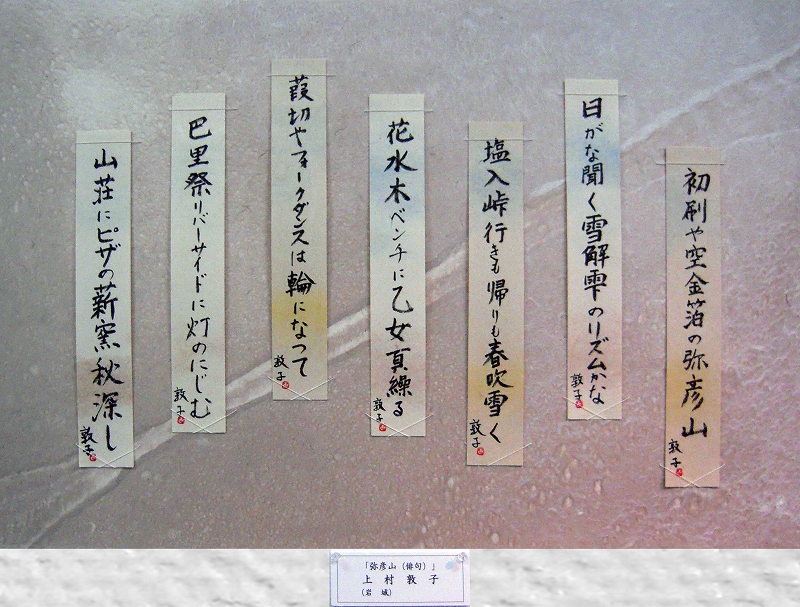 初刷や空金箔の弥彦山
敦子
日がな聞く雪解雫のリズムかな
敦子
塩入峠行きも帰りも春吹雪く
敦子
花水木ベンチに乙女頁繰る
敦子
葭切やフォークダンスは輪になつて
敦子
巴里祭リバーサイドに灯のにじむ
敦子
山荘にピザの薪窯秋深し
敦子
「弥彦山（俳句）」
上村敦子
（岩城）